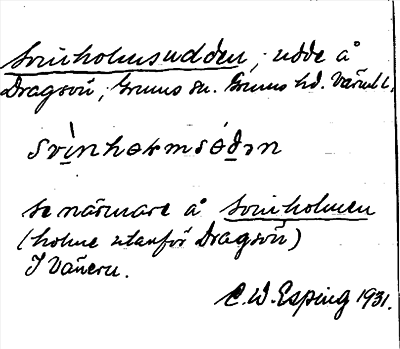 Svinholmsudden, udde å
Dragsön, Grums sn. Grums hd. Värml l.
svinhòₔmsódən
se närmare å Svinholmen
(holme utanför Dragsön)
I Vänern.
C.W. Esping 1931.